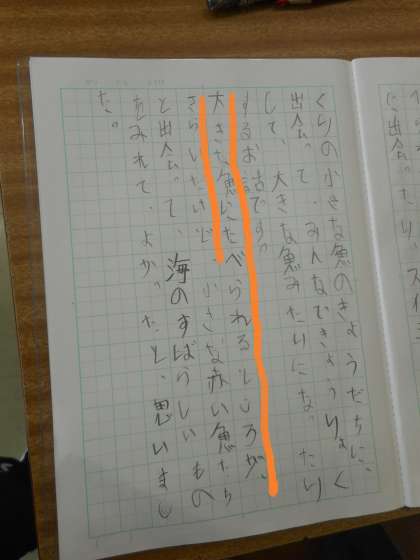 くりの小さな魚のきょうだちに、
出会って、みんなできょうりょく
して、大きな魚みたいになったり
するお話です。
大きな魚にたべられるところが、
きらいだけど、小さな赤い魚たち
と出会って、海のすばらしいもの
をみれて、よかったと、思いまし
た。